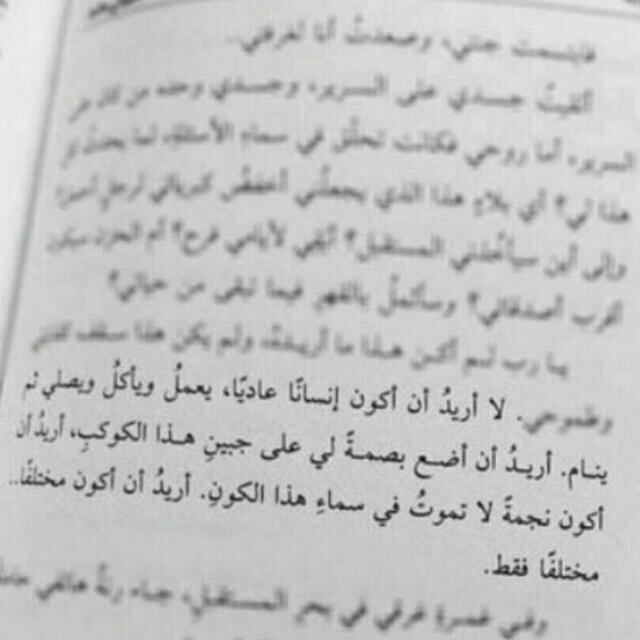 فابتسمت جدتي، وصعدتُ أنا لغرفتي..
ألقيتُ جسدي على السرير، وجسدي وحده من كان على
السرير، أما روحي فكانت تحلّق في سماءِ الأسئلة، لما يحدثُ
هذا لي؟ أي بلاءٍ هذا الذي يجعلُني أخفضُ كبريائي لرجلٍ
وإلى أين سيأخذني المستقبل؟ أبقي لأيامي فرح؟ أم الحزن سيكون
أقرب أصدقائي؟ وسأكملُ بالقهرِ فيما تبقى من حياتي؟
يا رب لم أكن هذا ما أريده، ولم يكن هذا سقف
وطموحي. لا أريدُ أن أكون إنسانًا عاديًا، يعملُ ويأكلُ ويصلي ثم
ينام. أريدُ أن أضع بصمةً لي على جبينِ هذا الكوكبِ، أريدُ أن
أكون نجمةً لا تموتُ في سماءِ هذا الكونِ. أريدُ أن أكون مختلفًا..
مختلفًا فقط.
وفي غمرةِ غرقي في بحرِ المستقبلِ، جاء رنةُ هاتفي